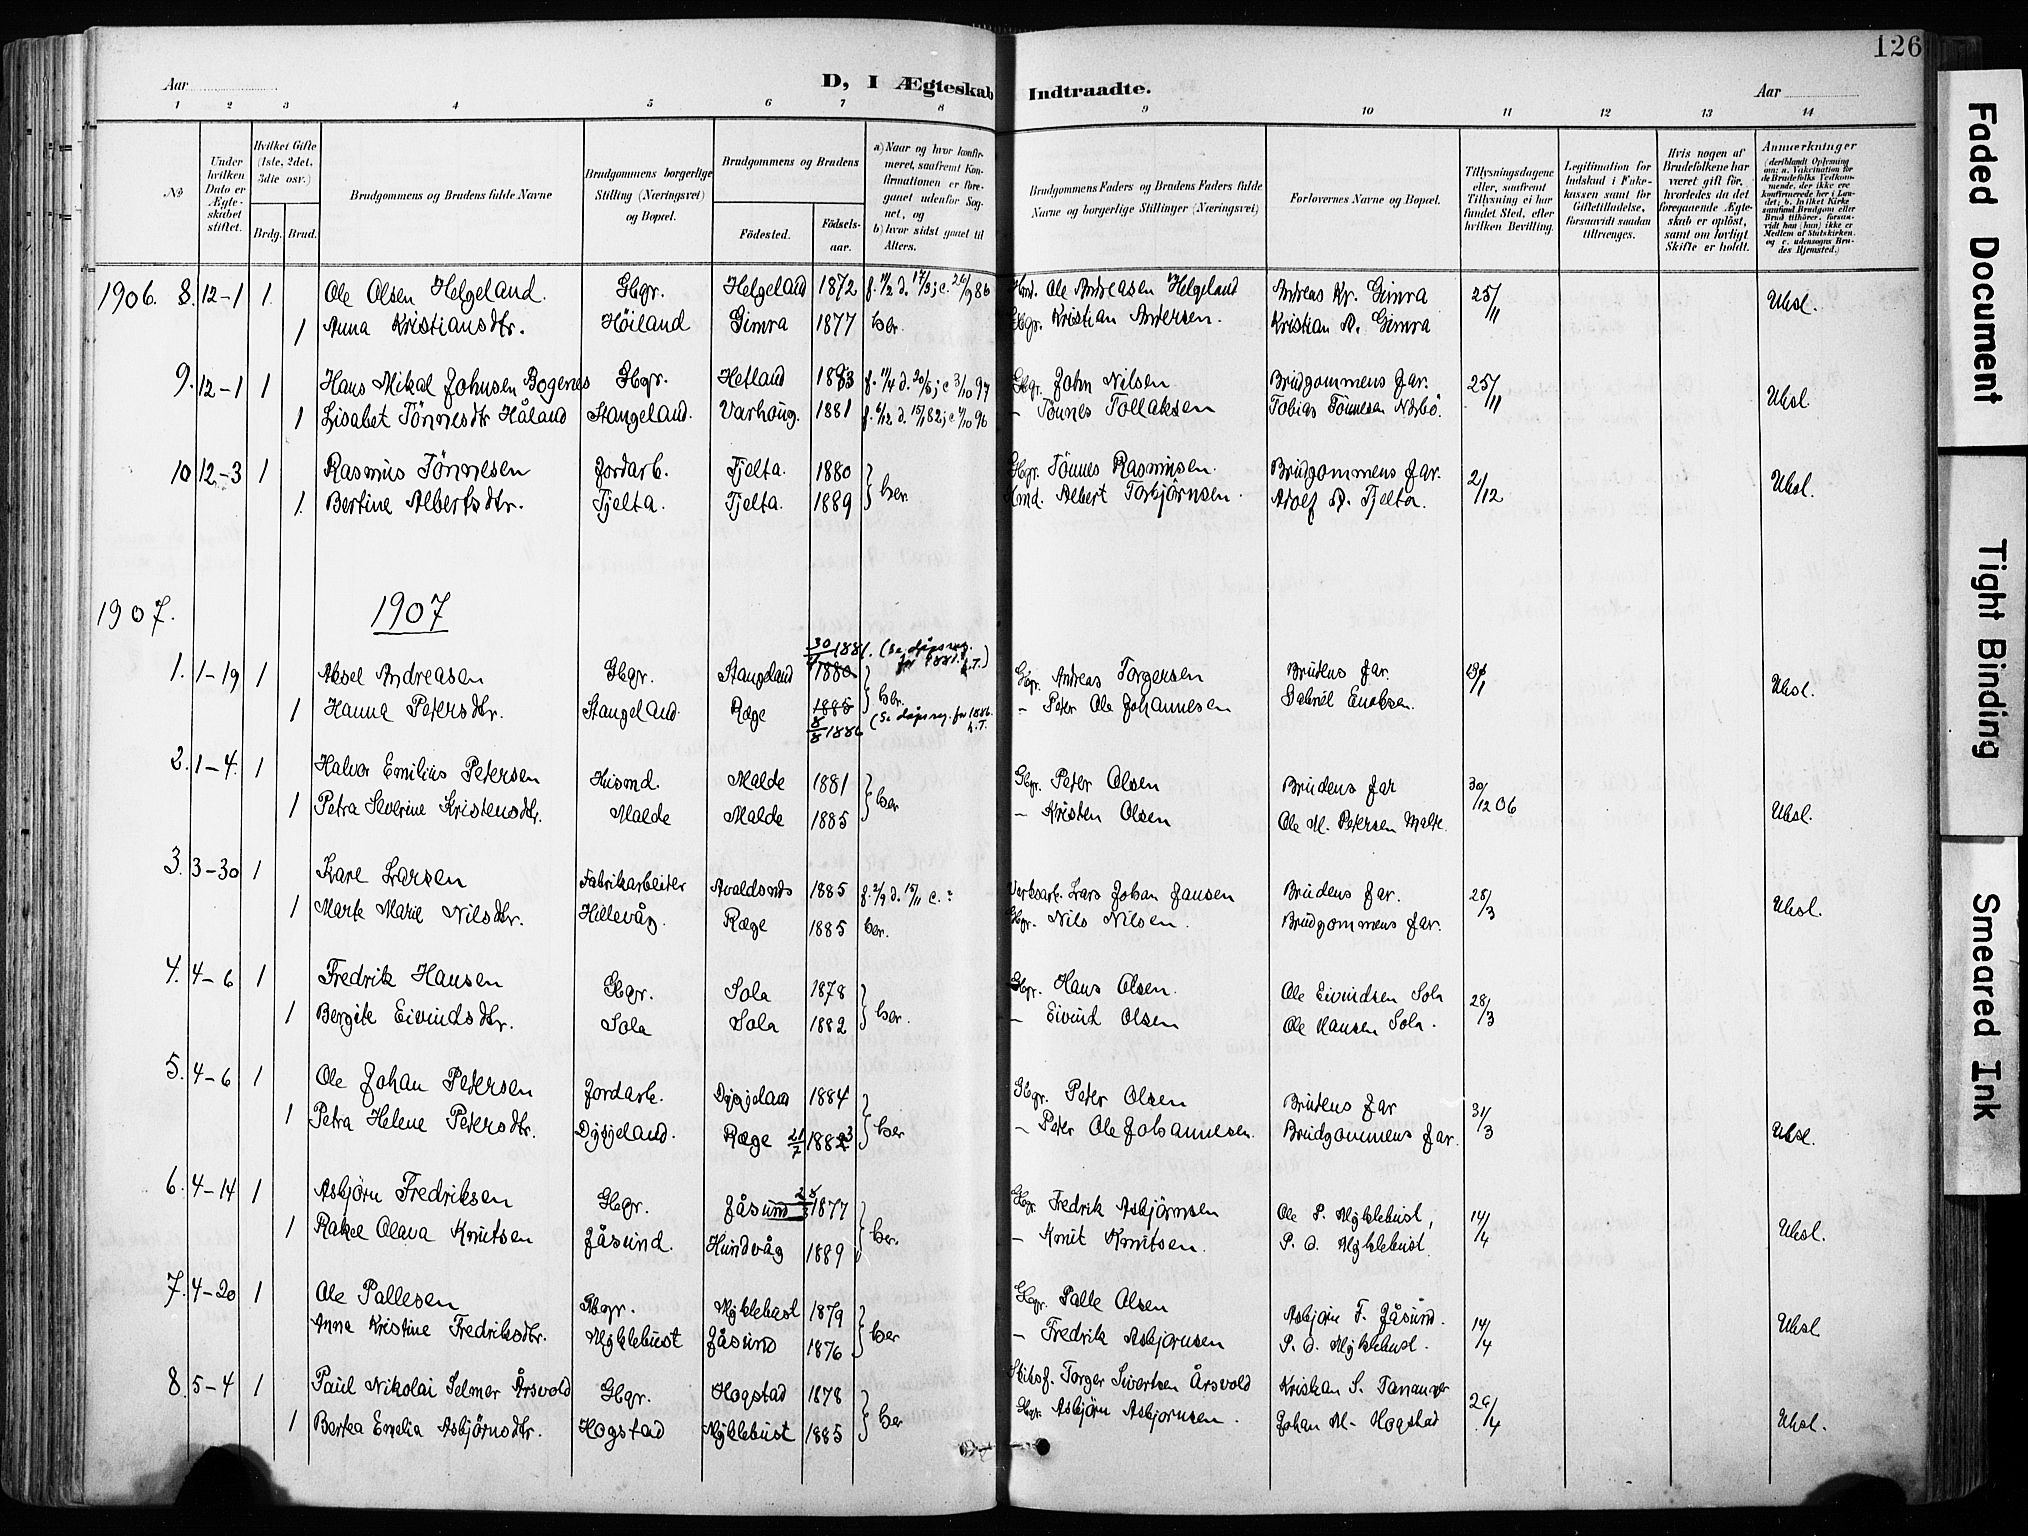 126
Aar
D, I Ægteskab Indtraadte.
Aar
1 2 3 4 5 6 7 8 9 10 11 12 13 14
№
Under hvilken Dato er Ægteskabet stiftet.
Hvilket Gifte (1ste, 2det, 3die osv.)
Brdg. Brud.
Brudgommens og Brudens fulde Navne
Brudgommens borgerlige Stilling (Næringsvei) og Bopæl.
Brudgommens og Brudens
Fødested.
Fødselsaar.
a) Naar og hvor konfirmeret, saafremt Konfirmationen er foregaaet udenfor Sognet, og
b) hvor sidst gaaet til Alters.
Brudgommens Faders og Brudens Faders fulde Navne og borgerlige Stillinger (Næringsvei)
Forlovernes Navne og Bopæl.
Tillysningsdagene eller, saafremt Tillysning ei har fundet Sted, efter hvilken Bevilling.
Legitimation for Indskud i Enkekassen samt for Giftetilladelse, forsaavidt saadan tiltrænges.
Hvis nogen af Brudefolkene har været gift før, hvorledes da det foregaaende Ægteskab er opløst, samt om lovligt Skifte er holdt.
Anmærkninger
1906. 8. 12-1 1 Ole Olsen Helgeland. Gbgr. Helgeland 1872 Ole Andreasen Helgeland Andreas Kr. Gimra 25/11 Uksl.
1 Anna Kristiansdtr. Höiland Gimra 1877 her. Gbgr. Kristian Andersen. Kristian A. Gimra
9. 12-1 1 Hans Mikal Johnsen Bogenes Gbgr. Hetland Gbgr. John Nilsen Brudgommens far. 25/11 Uksl
1 Lisabet Tönnesdtr Håland Stangeland. Varhoug. 1881 – Tönnes Tollaksen Tobias Tönnesen
10 12-3 1 Rasmus Tönnesen Jordarb. Tjelta. 1880 her. Gbgr. Tönnes Rasmusen. Brudgommens far. 2/12 Uksl.
1. Bertine Albertsdtr. Tjelta. Tjelta. 1889 Albert Torbjörnsen. Adolf A. Tjelta.
1907. 1907
1. 1-19 1 Aksel Andreasen Gbgr. Stangeland 30/ 1881. 1880 Gbgr. Andreas Torgersen Brudens far. Uksl.
1 Hanna Petersdtr. Stangeland Ræge 1885 8/8 1886 her. – Peter Ole Johannesen
2. 1-4. 1 Halvor Emilius Petersen Husmd. Malde 1881 her Gbgr. Peter Olsen Brudens far 30/12 06 Uksl.
1 Petra Severine Kristensdtr. Malde Malde 1885 – Kristen Olsen Ole M. Petersen Malde.
3. 3-30 1 Karl Larsen Fabrikarbeiter Avaldsnes 1885 Lars Johan Jansen Brudens far. 28/3 Uksl.
1 Marte Marie Nilsdtr. Hillevåg. Ræge 1885 her. Gbgr. Nils Nilsen. Brudgommens far.
4. 4-6 1 Fredrik Hansen Gbgr. Sola 1878 her. Gbgr. Hans Olsen. Ole Eivindsen Sola 28/3
1 Bergite Eivindsdtr. Sola Sola 1882 – Eivind Olsen Ole Hansen Sola.
5. 4-6 1 Ole Johan Petersen Jordarb. Dysjeland 1884 her Gbgr. Peter Olsen Brudens far 31/3 Uksl.
1 Petra Helene Petersdtr. Dysjeland. Ræge 21/7 – Peter Ole Johannesen. Brudgommens far.
6. 4-14 1 Asbjörn Fredriksen Gbgr. Jåsund 1877 her. Gbgr. Fredrik Asbjörnsen Ole P. Myklebust, 14/4 Uksl.
1 Rakel Olava Knutsen Jåsund. Hundvåg 1889 – Knut Knutsen. P. O. Myklebust.
7. 4-20 1 Ole Pallesen Gbgr. Myklebust 1879 her Gbgr. Palle Olsen Asbjörn F. Jåsund. 14/4 Uksl
Anna Kristine Fredriksdtr. Myklebust Jåsund 1876 – Fredrik Asbjörnsen P. O. Myklebust.
8. 5-4 1 Paul Nikolai Selmer Årsvold Gbgr. Hogstad 1878 her Torger Sivertsen Årsvold Kristian S. Tananger 26/4 Uksl.
1 Bertea Emelia Asbjörnsdtr. Hogstad Myklebust 1885 Gbgr. Asbjörn Asbjornsen. Johan M. Hogstad
Faded Document
Tight Binding
Smeared Ink